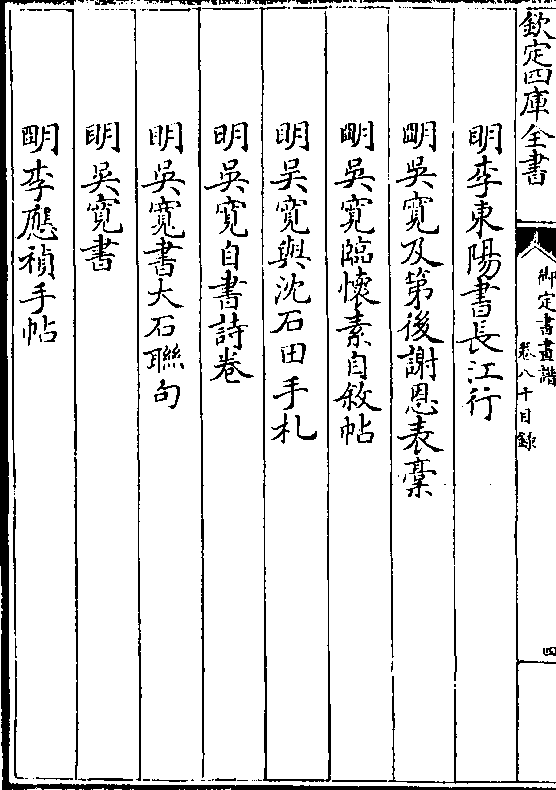 欽定四庫全書
御定書畫譜
卷八十目錄
四
明李東陽書長江行
明吳寬及第後謝恩表稾
明吳寬臨懷素自敘帖
明吳寬與沈石田手札
明吳寬自書詩卷
明吳寬書大石聯句
明吳寬書
明李應禎手帖